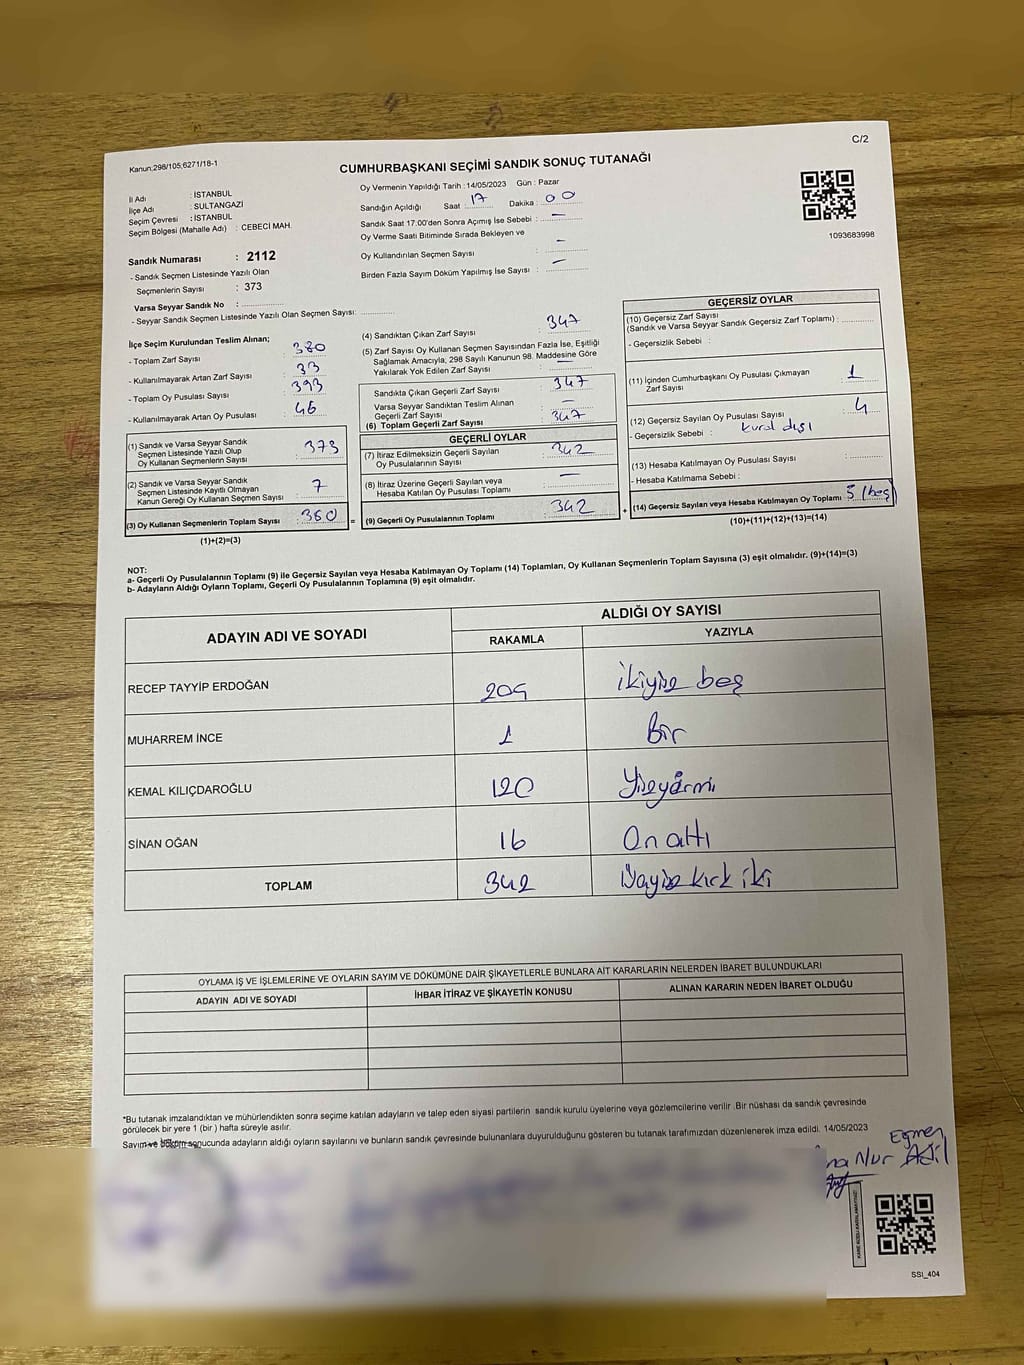 C/2
Kanun:298/105;6271/18-1
CUMHURBAŞKANI SEÇİMİ SANDIK SONUÇ TUTANAĞI
İl Adı : İSTANBUL
İlçe Adı : SULTANGAZİ
Seçim Çevresi : İSTANBUL
Seçim Bölgesi (Mahalle Adı) : CEBECİ MAH.
Sandık Numarası : 2112
- Sandık Seçmen Listesinde Yazılı Olan
Seçmenlerin Sayısı : 373
Varsa Seyyar Sandık No :
- Seyyar Sandık Seçmen Listesinde Yazılı Olan Seçmen Sayısı:
Oy Vermenin Yapıldığı Tarih : 14/05/2023 Gün : Pazar
Sandığın Açıldığı Saat 17 Dakika : 00
Sandık Saat 17:00'den Sonra Açımış İse Sebebi : —
Oy Verme Saati Bitiminde Sırada Bekleyen ve
Oy Kullandırılan Seçmen Sayısı : —
Birden Fazla Sayım Döküm Yapılmış İse Sayısı : —
1093683998
İlçe Seçim Kurulundan Teslim Alınan;
- Toplam Zarf Sayısı : 380
- Kullanılmayarak Artan Zarf Sayısı : 33
- Toplam Oy Pusulası Sayısı : 393
- Kullanılmayarak Artan Oy Pusulası : 46
(1) Sandık ve Varsa Seyyar Sandık
Seçmen Listesinde Yazılı Olup
Oy Kullanan Seçmenlerin Sayısı : 373
(2) Sandık ve Varsa Seyyar Sandık
Seçmen Listesinde Kayıtlı Olmayan
Kanun Gereği Oy Kullanan Seçmen Sayısı : 7
(3) Oy Kullanan Seçmenlerin Toplam Sayısı : 380
(1)+(2)=(3)
(4) Sandıktan Çıkan Zarf Sayısı : 347
(5) Zarf Sayısı Oy Kullanan Seçmen Sayısından Fazla İse, Eşitliği
Sağlamak Amacıyla; 298 Sayılı Kanunun 98. Maddesine Göre
Yakılarak Yok Edilen Zarf Sayısı : —
Sandıkta Çıkan Geçerli Zarf Sayısı : 347
Varsa Seyyar Sandıktan Teslim Alınan
Geçerli Zarf Sayısı : —
(6) Toplam Geçerli Zarf Sayısı : 347
GEÇERLİ OYLAR
(7) İtiraz Edilmeksizin Geçerli Sayılan
Oy Pusulalarının Sayısı : 342
(8) İtiraz Üzerine Geçerli Sayılan veya
Hesaba Katılan Oy Pusulası Toplamı : —
= (9) Geçerli Oy Pusulalarının Toplamı : 342
GEÇERSİZ OYLAR
(10) Geçersiz Zarf Sayısı
(Sandık ve Varsa Seyyar Sandık Geçersiz Zarf Toplamı) :
- Geçersizlik Sebebi :
(11) İçinden Cumhurbaşkanı Oy Pusulası Çıkmayan
Zarf Sayısı : 1
(12) Geçersiz Sayılan Oy Pusulası Sayısı : 4
- Geçersizlik Sebebi : kural dışı
(13) Hesaba Katılmayan Oy Pusulası Sayısı :
- Hesaba Katılmama Sebebi :
+ (14) Geçersiz Sayılan veya Hesaba Katılmayan Oy Toplamı : 5 (beş)
(10)+(11)+(12)+(13)=(14)
NOT:
a- Geçerli Oy Pusulalarının Toplamı (9) ile Geçersiz Sayılan veya Hesaba Katılmayan Oy Toplamı (14) Toplamları, Oy Kullanan Seçmenlerin Toplam Sayısına (3) eşit olmalıdır. (9)+(14)=(3)
b- Adayların Aldığı Oyların Toplamı, Geçerli Oy Pusulalarının Toplamına (9) eşit olmalıdır.
ADAYIN ADI VE SOYADI ALDIĞI OY SAYISI
RAKAMLA YAZIYLA
RECEP TAYYİP ERDOĞAN 205 ikiyüz beş
MUHARREM İNCE 1 Bir
KEMAL KILIÇDAROĞLU 120 Yüzyirmi
SİNAN OĞAN 16 On altı
TOPLAM 342 Üçyüz kırk iki
OYLAMA İŞ VE İŞLEMLERİNE VE OYLARIN SAYIM VE DÖKÜMÜNE DAİR ŞİKAYETLERLE BUNLARA AİT KARARLARIN NELERDEN İBARET BULUNDUKLARI
ADAYIN ADI VE SOYADI İHBAR İTİRAZ VE ŞİKAYETİN KONUSU ALINAN KARARIN NEDEN İBARET OLDUĞU
*Bu tutanak imzalandıktan ve mühürlendikten sonra seçime katılan adayların ve talep eden siyasi partilerin sandık kurulu üyelerine veya gözlemcilerine verilir .Bir nüshası da sandık çevresinde
görülecek bir yere 1 (bir ) hafta süreyle asılır.
Sayım ve döküm sonucunda adayların aldığı oyların sayılarını ve bunların sandık çevresinde bulunanlara duyurulduğunu gösteren bu tutanak tarafımızdan düzenlenerek imza edildi. 14/05/2023
Nur
SSI_404